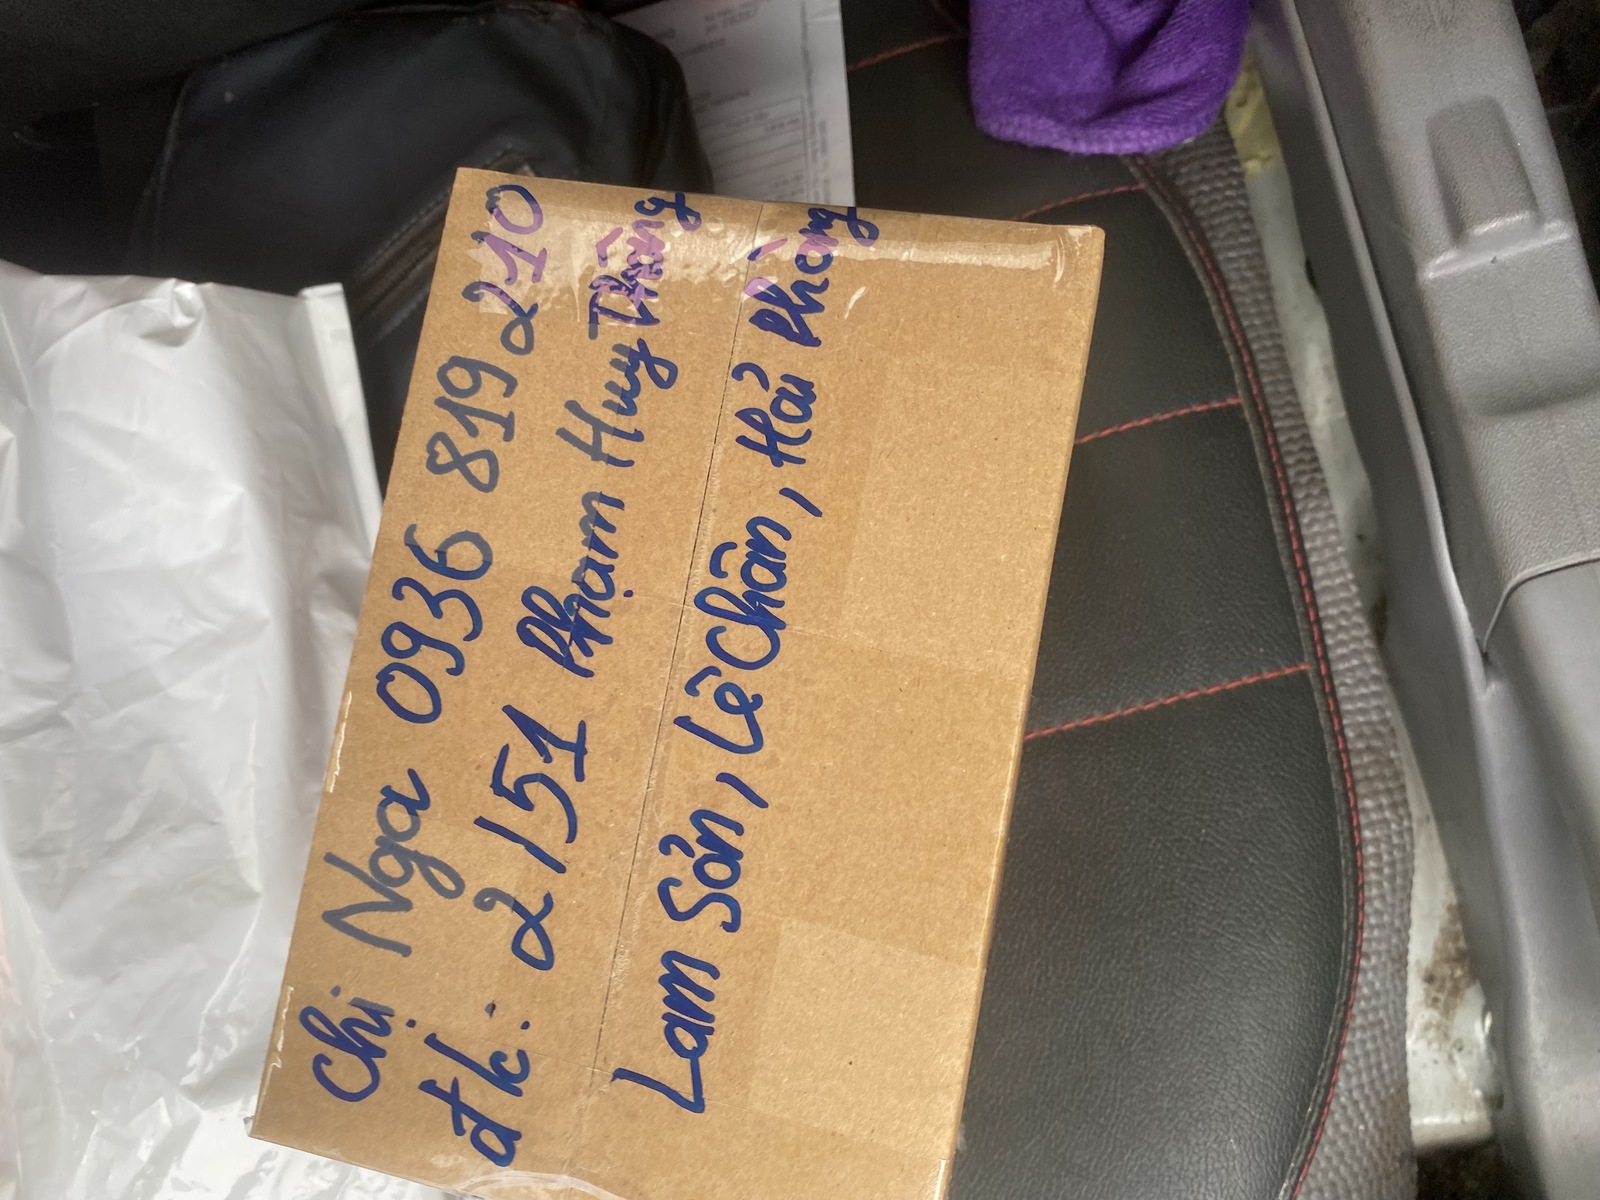 Chị Nga 0936 819 210
đ/c: 2/151 Phạm Huy Thông
Lam Sơn, Lê Chân, Hải Phòng